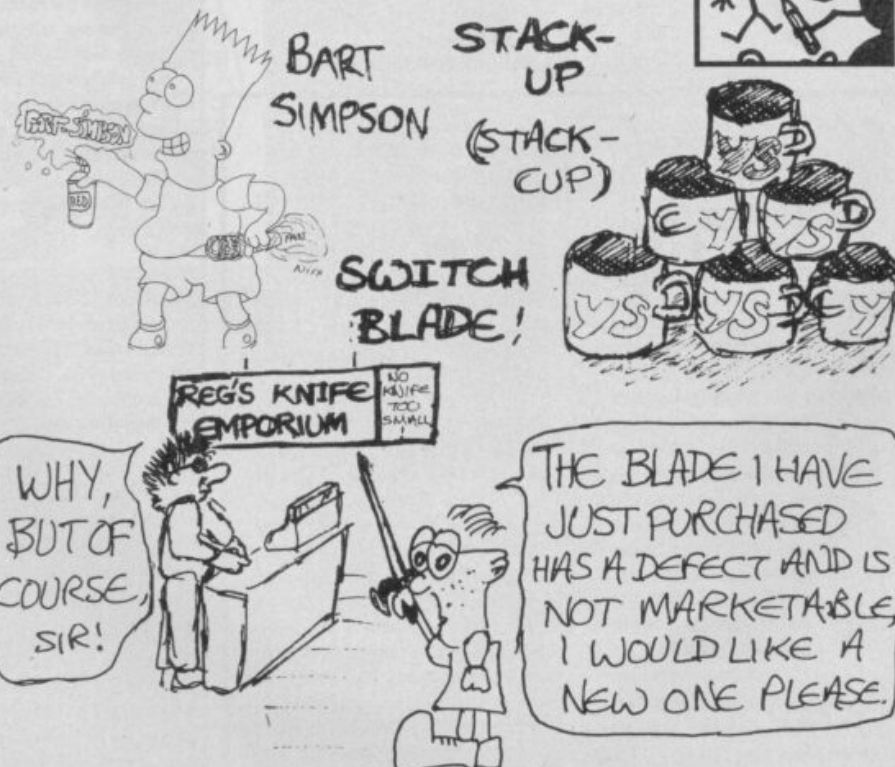 BART
SIMPSON
STACK-
UP
(STACK-
CUP)
FART-SIMPSON
RED
YS
Y
YS
YS
YS
Y
SWITCH
BLADE!
REG'S KNIFE
EMPORIUM
NO
KNIFE
TOO
SMALL
WHY,
BUT OF
COURSE,
SIR!
THE BLADE I HAVE
JUST PURCHASED
HAS A DEFECT AND IS
NOT MARKETABLE,
I WOULD LIKE A
NEW ONE PLEASE.